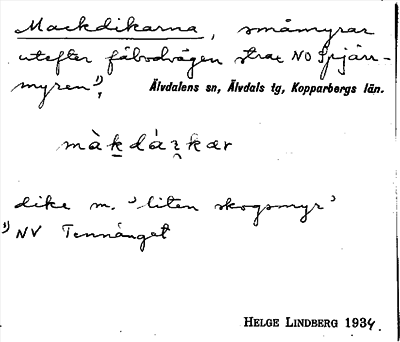 Mackdikarna, småmyrar
utefter fäbodvägen strax NO Spjärr-
myren¹⁾,
Älvdalens sn, Älvdals tg, Kopparbergs län.
dike m. 'liten skogsmyr'
¹⁾ NV Tennänget
HELGE LINDBERG 1934.